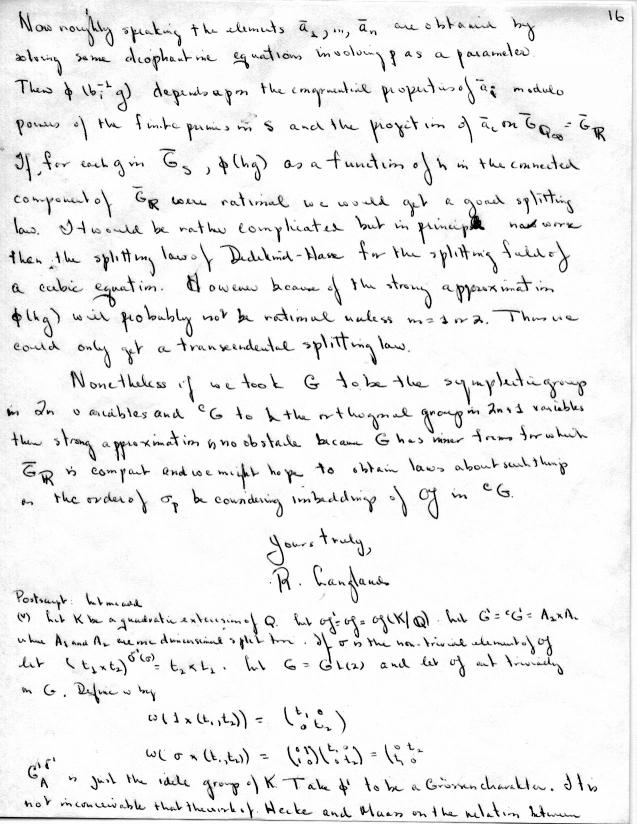 16
Now roughly speaking the elements ā₁, ..., āₙ are obtained by
solving some diophantine equations involving p as a parameter.
Then φ(bᵢ⁻¹g) depends upon the congruential properties of āᵢ modulo
powers of the finite primes in S and the projection of āᵢ on Ḡ_{Q∞} = Ḡ_R
If, for each g in Ḡ_S, φ(hg) as a function of h in the connected
component of Ḡ_R were rational we would get a good splitting
law. It would be rather complicated but in principle no worse
than the splitting law of Dedekind-Hasse for the splitting field of
a cubic equation. However because of the strong approximation
φ(hg) will probably not be rational unless m = 1 or 2. Thus we
could only get a transcendental splitting law.
Nonetheless if we took G to be the symplectic group
in 2n variables and ᶜG to be the orthogonal group in 2n+1 variables
then strong approximation is no obstacle because G has inner forms for which
Ḡ_R is compact and we might hope to obtain laws about such things
as the order of σ_p by considering imbeddings of 𝔤 in ᶜG.
Yours truly,
R. Langlands
Postscript: Let me add
(v) Let K be a quadratic extension of Q. Let 𝔤' = 𝔤 = 𝔤(K/Q). Let G' = ᶜG' = A₁×A₂
where A₁ and A₂ are one dimensional split tori. If σ is the non-trivial element of 𝔤
let (t₁×t₂)^{δ'(σ)} = t₂×t₁. Let G = GL(2) and let 𝔤 act trivially
on G. Define ω by
ω(1×(t₁,t₂)) = (t₁ 0 / 0 t₂)
ω(σ×(t₁,t₂)) = (0 1 / 1 0)(t₁ 0 / 0 t₂) = (0 t₂ / t₁ 0)
G'^{δ'}_A is just the idele group of K. Take φ' to be a Grössencharakter. It is
not inconceivable that the work of Hecke and Maass on the relation between